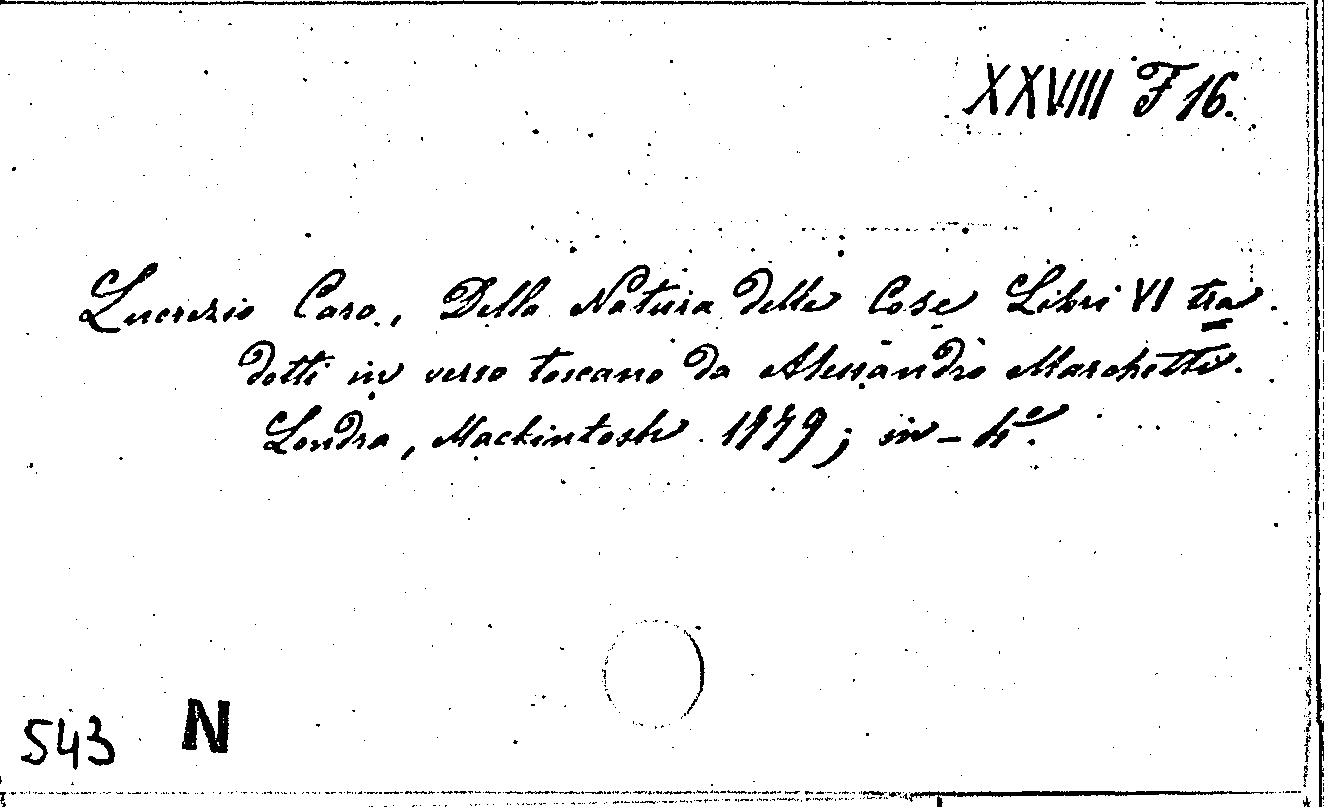 XXVIII F 16.
Lucrezio Caro, Della Natura delle Cose Libri VI tra=
dotti in verso toscano da Alessandro Marchetti.
Londra, Mackintosh 1779; in-4º.
543 N